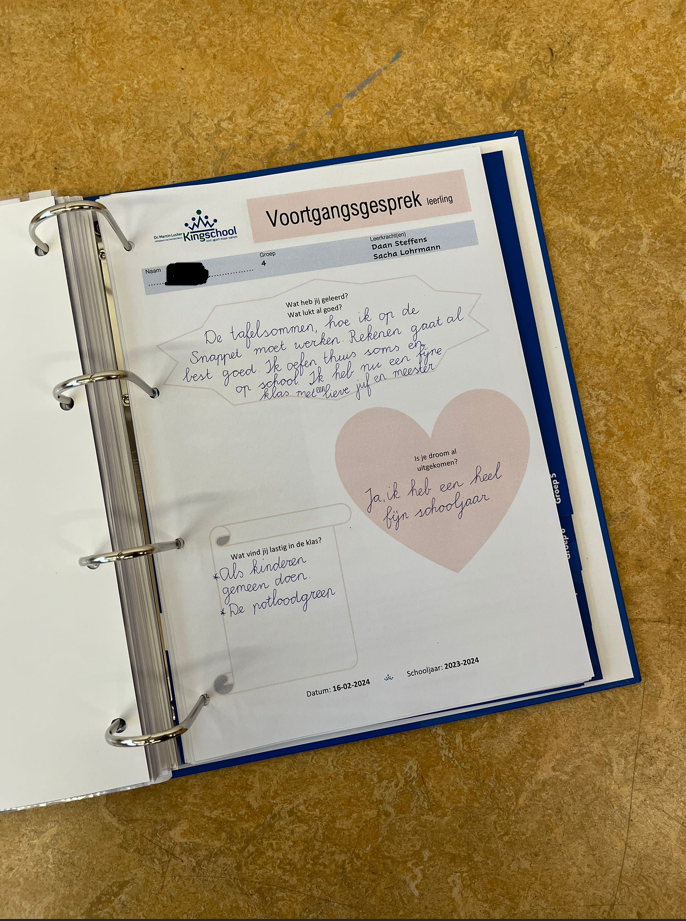 Voortgangsgesprek leerling
Dr. Martin Luther
Kingschool
Naam
Groep
4
Leerkracht(en)
Daan Steffens
Sacha Lohrmann
Wat heb jij geleerd?
Wat lukt al goed?
De tafelsommen, hoe ik op de
Snappet moet werken. Rekenen gaat al
best goed Ik oefen thuis soms en
op school. Ik heb nu een fijne
klas met een lieve juf en meester
Is je droom al
uitgekomen?
Ja, ik heb een heel
fijn schooljaar
Wat vind jij lastig in de klas?
* Als kinderen
gemeen doen.
* De potloodgreep
Datum: 16-02-2024
Schooljaar: 2023-2024
Groep 5